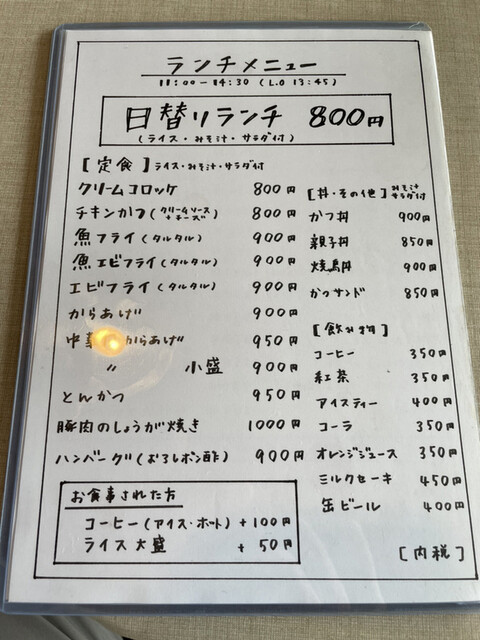 ランチメニュー
11:00-14:30 (L.O 13:45)
日替りランチ 800円
(ライス・みそ汁・サラダ付)
[定食] ライス・みそ汁・サラダ付
クリームコロッケ 800円
チキンかつ(クリームソース+チーズ) 800円
魚フライ(タルタル) 900円
魚エビフライ(タルタル) 900円
エビフライ(タルタル) 900円
からあげ 900円
中華 からあげ 950円
〃 小盛 900円
とんかつ 950円
豚肉のしょうが焼き 1000円
ハンバーグ(おろしポン酢) 900円
お食事された方
コーヒー(アイス・ホット) +100円
ライス大盛 + 50円
[丼・その他] みそ汁サラダ付
かつ丼 900円
親子丼 850円
焼鳥丼 900円
かつサンド 850円
[飲み物]
コーヒー 350円
紅茶 350円
アイスティー 400円
コーラ 350円
オレンジジュース 350円
ミルクセーキ 450円
缶ビール 400円
[内税]